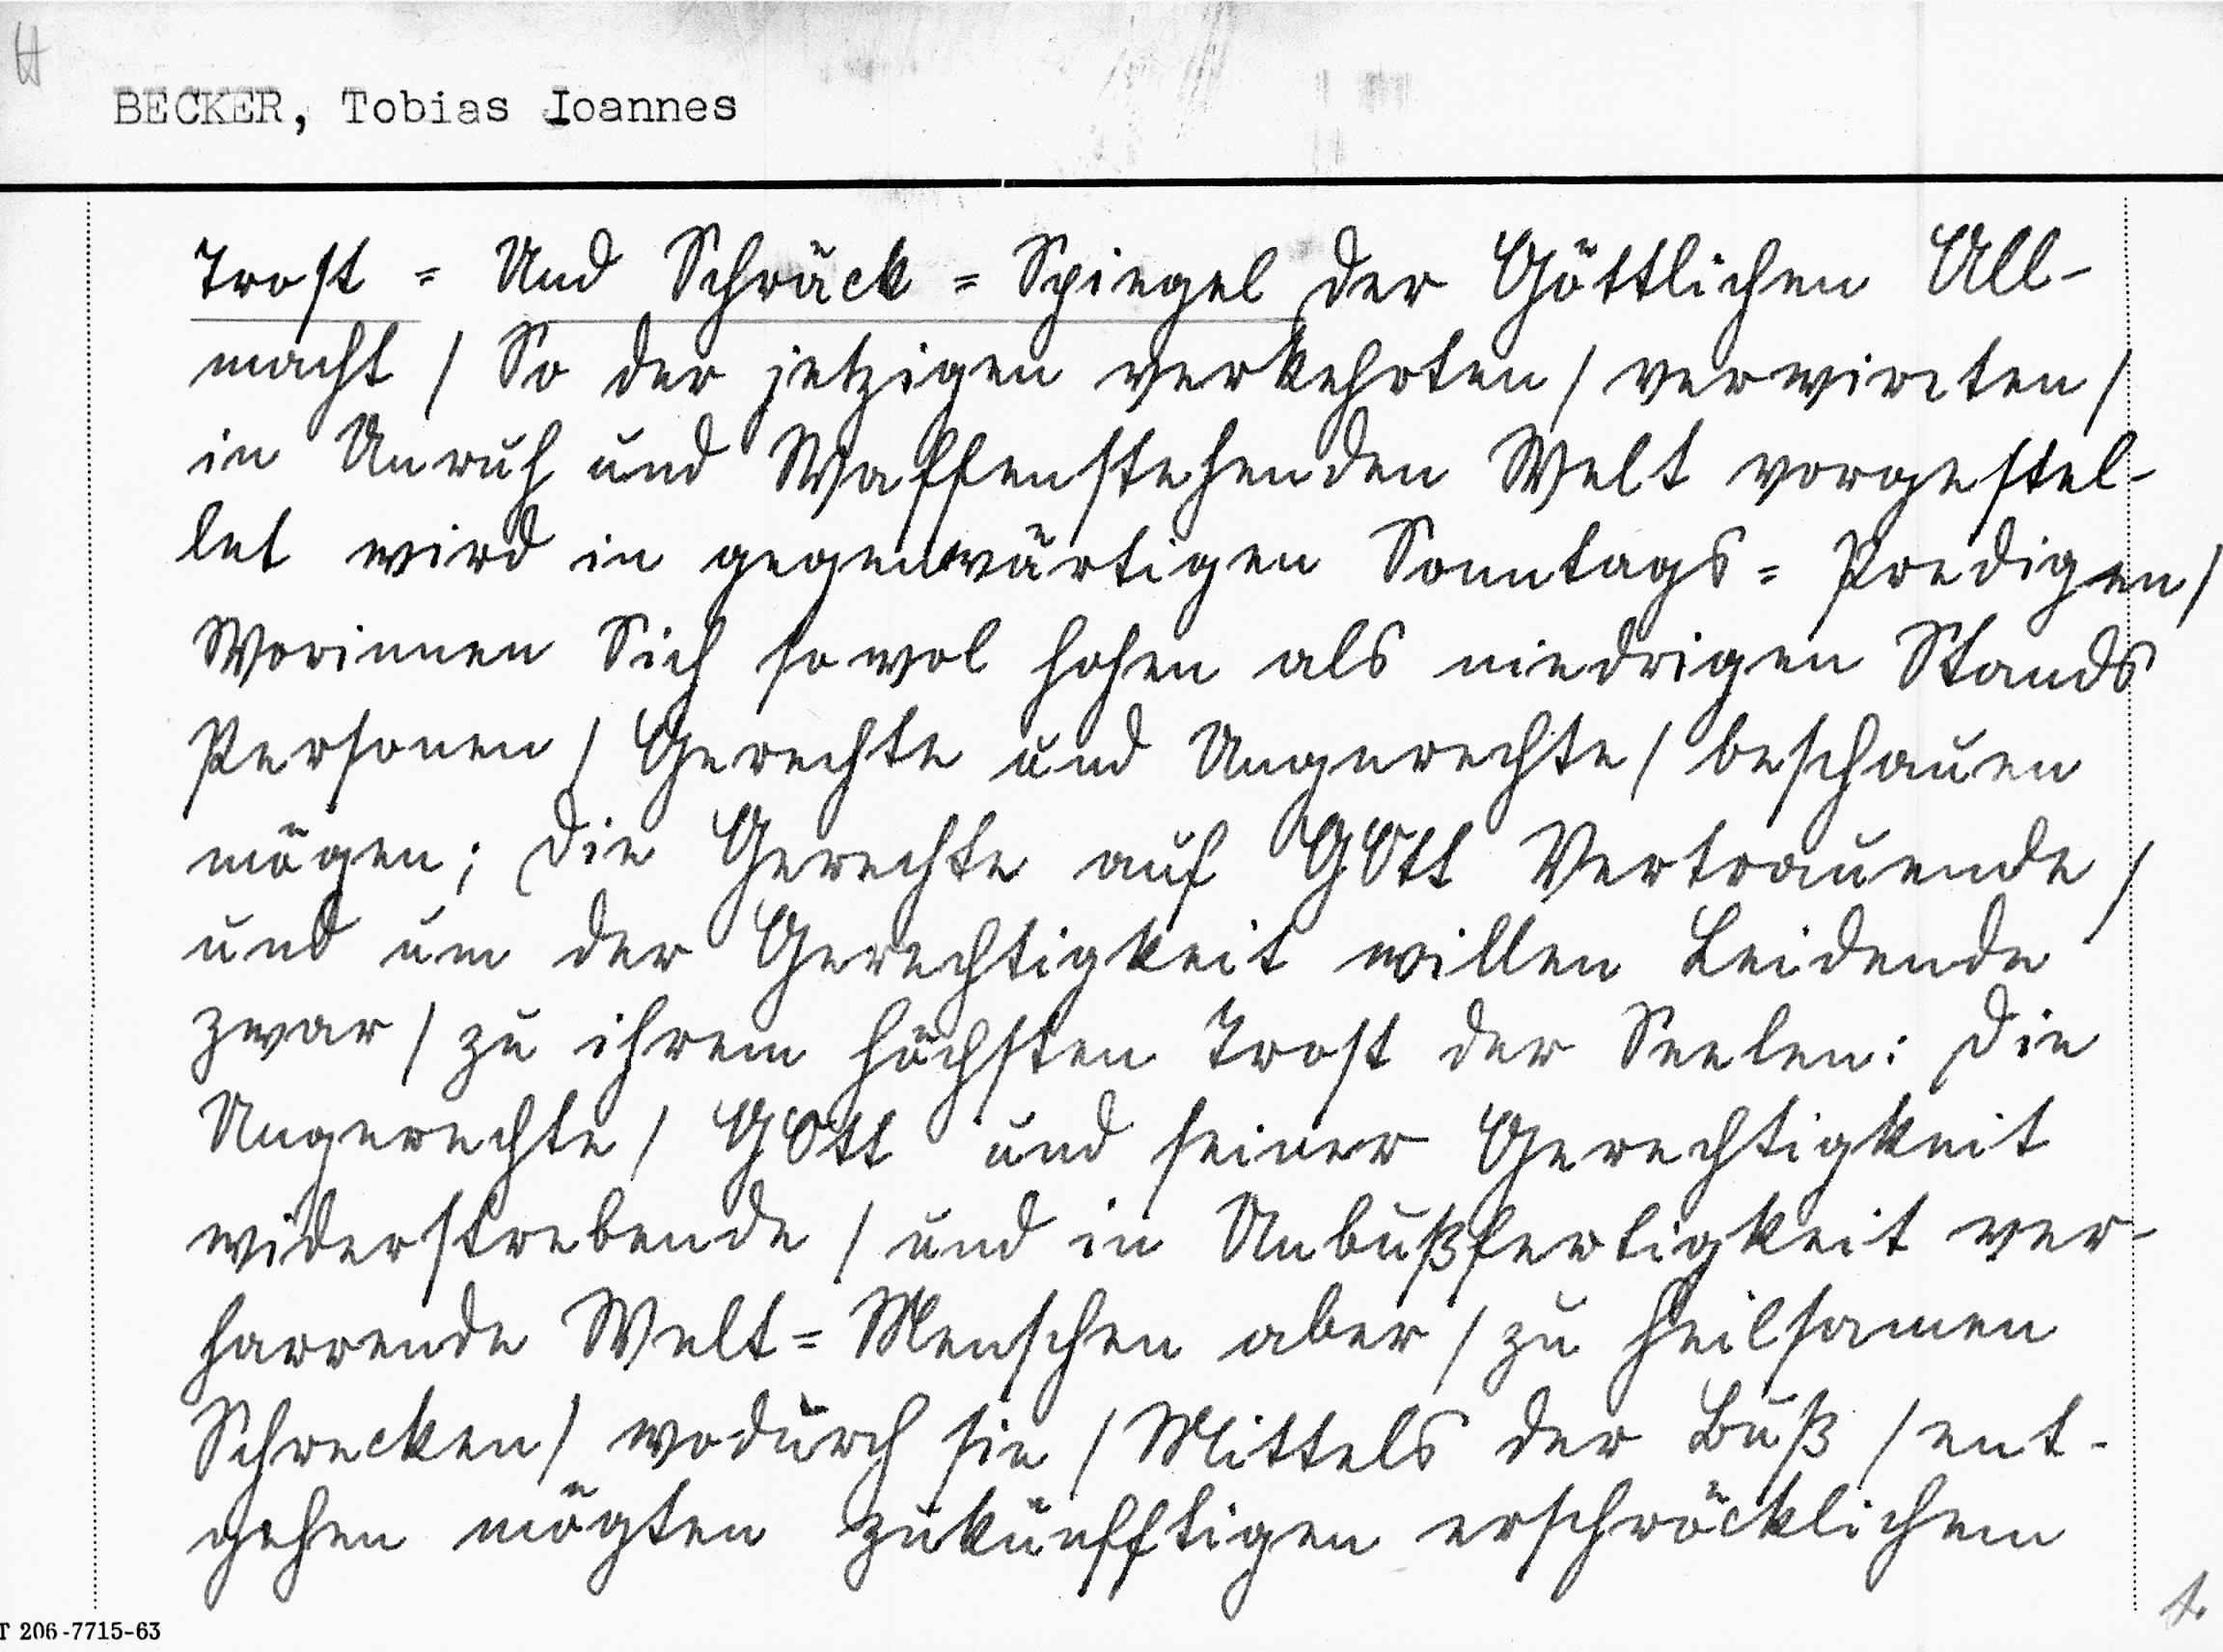 BECKER, Tobias Ioannes
Trost = Und Schräck = Spiegel der Göttlichen All-
macht / So der jetzigen verkehrten / verwirrten /
in Unruh und Waffenstehenden Welt vorgestel-
let wird in gegenwärtigen Sonntags = Predigen /
Worinnen Sich sowol hohen als niedrigen Stands
Personen / Gerechte und Ungerechte / beschauen
mögen; die Gerechte auf GOtt Vertrauende /
und um der Gerechtigkeit willen Leidende
zwar / zu ihrem höchsten Trost der Seelen: die
Ungerechte / GOtt und seiner Gerechtigkeit
widerstrebende / und in Unbußfertigkeit ver-
harrende Welt = Menschen aber / zu heilsamen
Schrecken / wodurch sie / Mittels der Buß / ent-
gehen mögten zukünfftigen erschröcklichem
T 206-7715-63